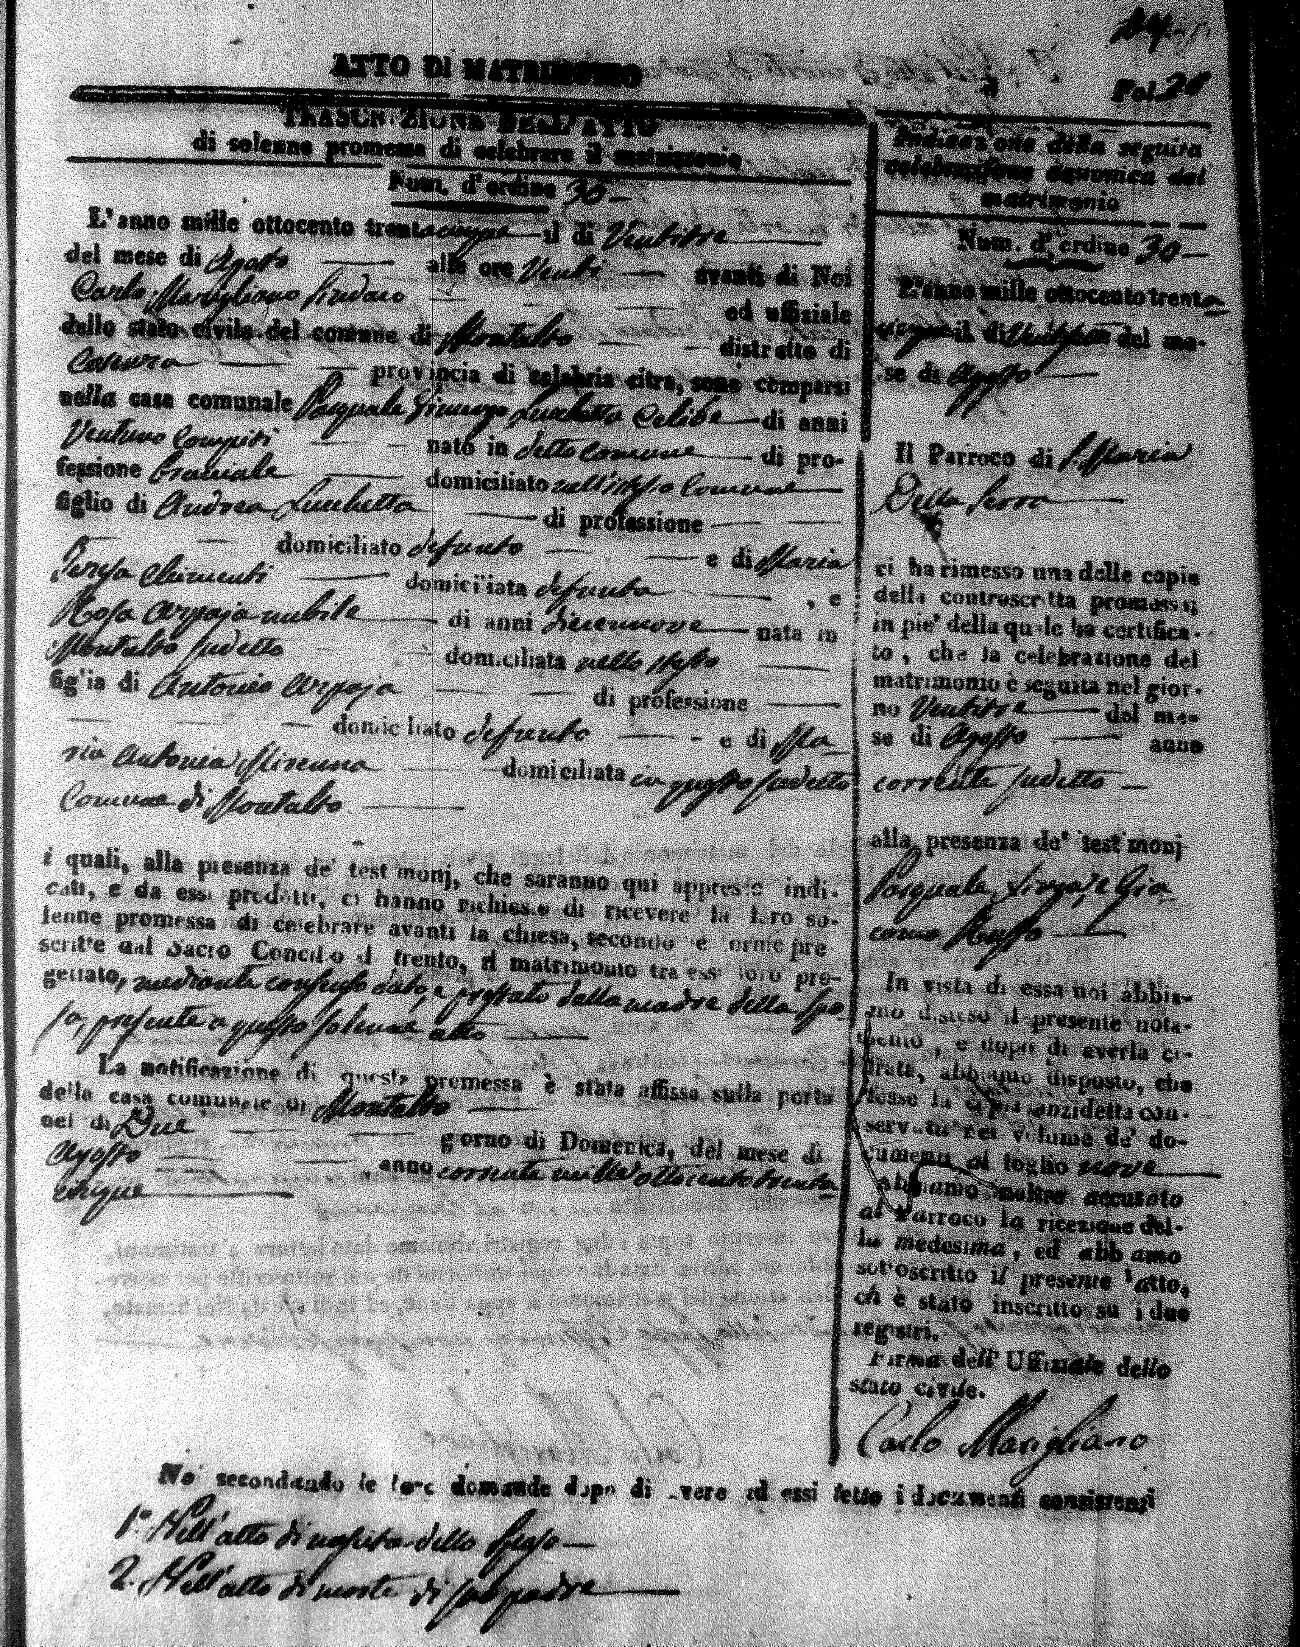 24
Fol. 26
ATTO DI MATRIMONIO
TRASCRIZIONE DELL'ATTO
di solenne promessa di celebrare il matrimonio.
Num. d'ordine 30 —
L'anno mille ottocento trentacinque il di Ventitre
del mese di Agosto alle ore Venti avanti di Noi
Carlo Marigliano Sindaco ed uffiziale
dello stato civile del comune di Montalto distretto di
Cosenza provincia di calabria citra, sono comparsi
nella casa comunale Pasquale Lucchetta Celibe di anni
Ventuno Compiti nato in detto comune di pro-
fessione Bracciale domiciliato nell'istesso Comune
figlio di Andrea Lucchetta di professione
domiciliato defunto e di Maria
Teresa Chimenti domiciliata defunta , e
Rosa Arpaja nubile di anni Diecennove nata in
Montalto sudetto domiciliata nello stesso
figlia di Antonio Arpaja di professione
domiciliato defunto e di Ma
ria Antonia domiciliata in questo sudetto
Comune di Montalto
i quali, alla presenza de' testimonj, che saranno qui appresso indi-
cati, e da essi prodotti, ci hanno richiesto di ricevere la loro so-
lenne promessa di celebrare avanti la chiesa, secondo le forme pre
scritte dal Sacro Concilio di trento, il matrimonio tra essi loro pro-
gettato, mediante consenso dato, e prestato dalla madre della Spo
sa, presente a questo solenne atto
La notificazione di questa promessa è stata affissa sulla porta
della casa comunale di Montalto
nel di Due giorno di Domenica, del mese di
Agosto , anno corrente mille ottocento trenta
cinque
Indicazione della seguita
celebrazione canonica del
matrimonio
Num. d'ordine 30 —
L'anno mille ottocento trenta
cinque il di del me-
se di Agosto
Il Parroco di S. Maria
Della Serra
ci ha rimesso una delle copie
della controscritta promessa
in pie' della quale ha certifica-
to, che la celebrazione del
matrimonio è seguita nel gior-
no Ventitre del me-
se di Agosto anno
corrente sudetto
alla presenza de' testimonj
Pasquale e Gia
como Ruffo
In vista di essa noi abbia-
mo disteso il presente nota-
mento, e dopo di averla ci-
frata, abbiamo disposto, che
fosse la copia anzidetta con-
servata nel volume de' do-
cumenti al foglio nove
abbiamo inoltre accusato
al Parroco la ricezione del-
la medesima, ed abbiamo
sottoscritto il presente atto,
ch'è stato inscritto su i due
registri.
Firma dell'Uffiziale dello
stato civile.
Carlo Marigliano
Noi secondando le loro domande dopo di avere ad essi letto i documenti consistenti
1.° Nell'atto di nascita dello Sposo
2. Nell'atto di morte di suo padre